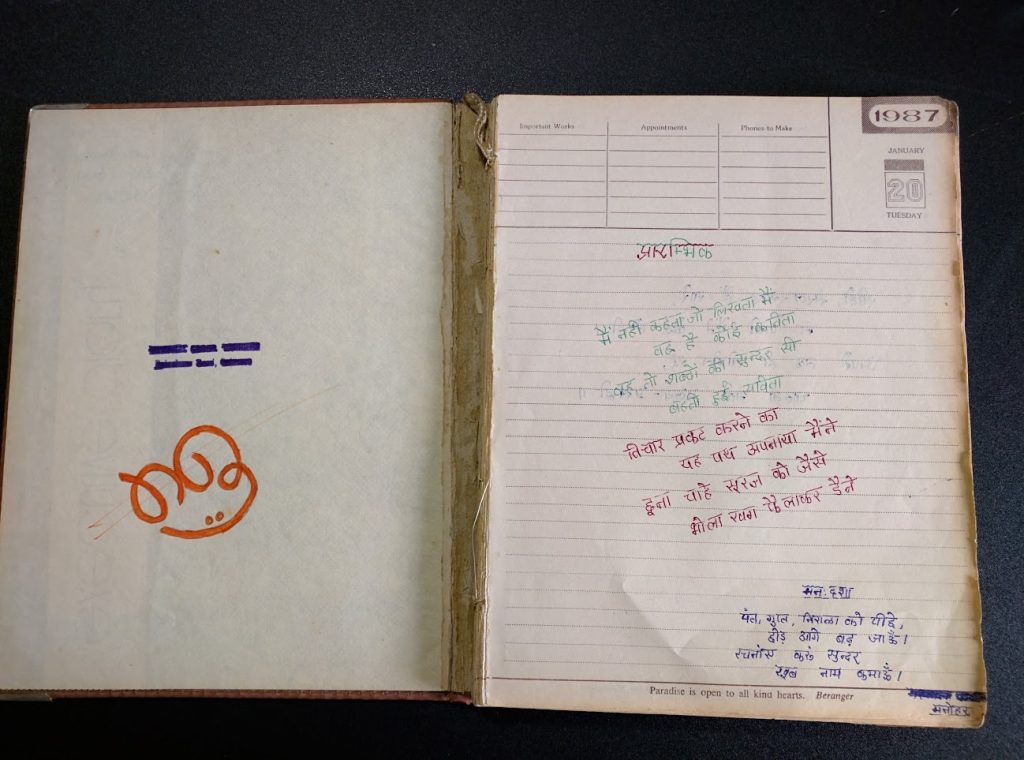 Important Works
Appointments
Phones to Make
1987
JANUARY
20
TUESDAY
प्रारम्भिक
मैं नहीं कहता जो लिखता मैं
वह है कोई कविता
वह तो शब्दों की सुन्दर सी
बहती हुई सविता
विचार प्रकट करने का
यह पथ अपनाया मैंने
छूना चाहे सूरज को जैसे
भोला खग फैलाकर डैने
मनः दशा
पंत, गुप्त, निराला को पीछे,
छोड़ आगे बढ़ जाऊँ।
रचनाएं करूं सुन्दर
खूब नाम कमाऊँ।
Paradise is open to all kind hearts. Beranger
मनोहर